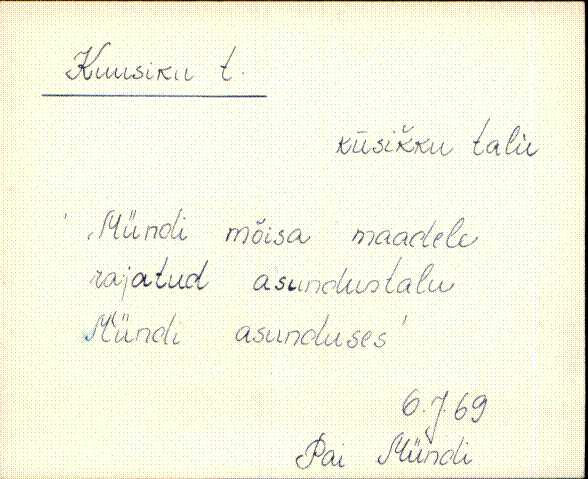 Kuusiku t.
kūsiˋkku talu
'Mündi mõisa maadele
rajatud asundustalu
Mündi asunduses'
6.J.69
Pai Mündi